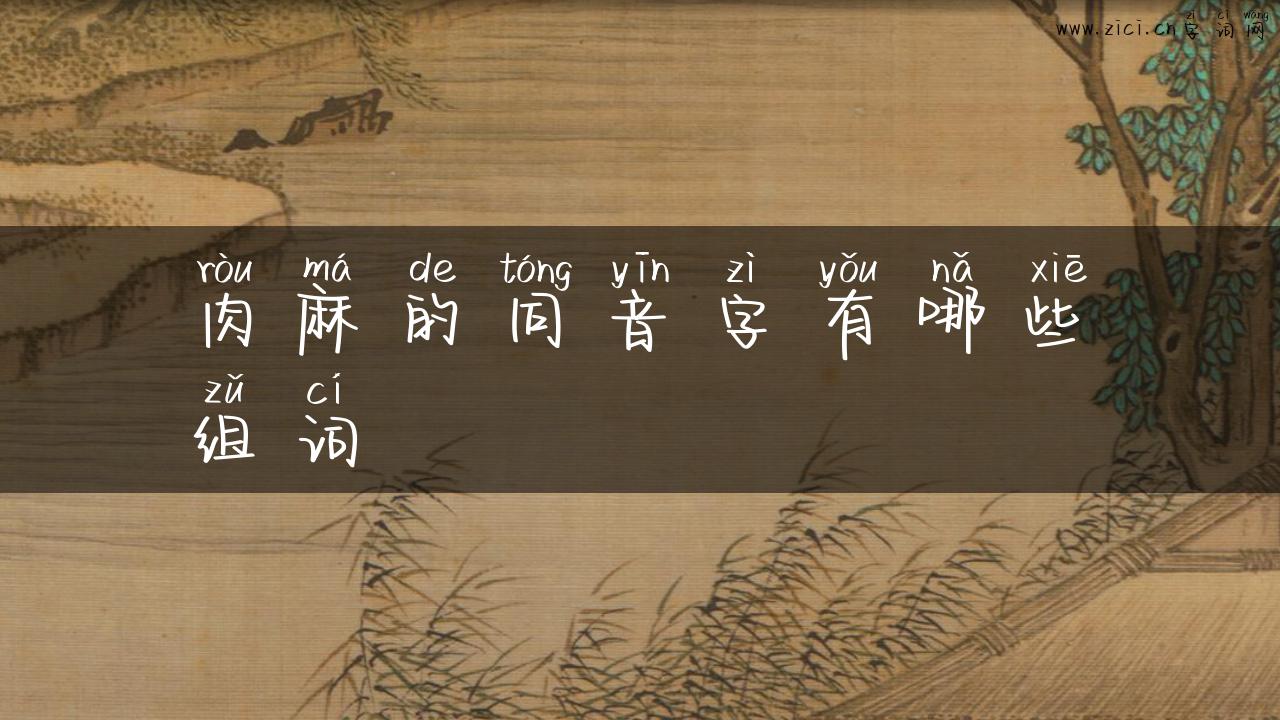 zì cí wǎng
www.zici.cn字词网
ròu má de tóng yīn zì yǒu nǎ xiē
肉麻的同音字有哪些
zǔ cí
组词